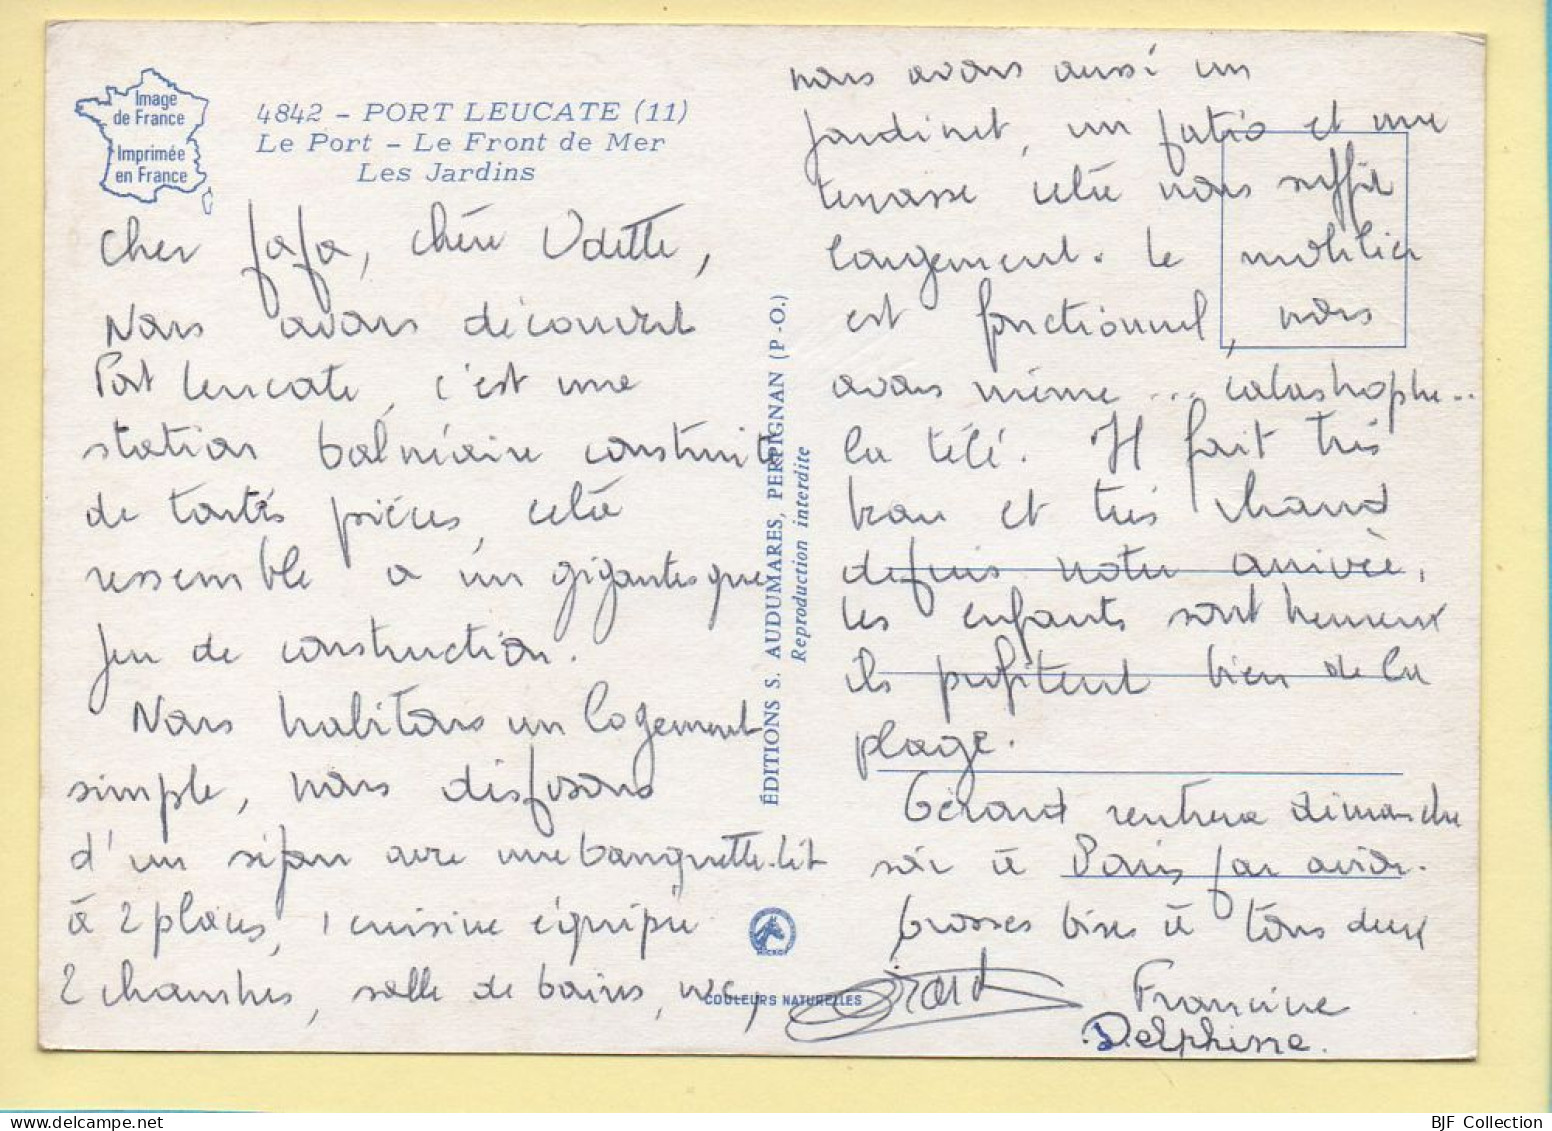 Image
de France
Imprimée
en France
4842 - PORT LEUCATE (11)
Le Port - Le Front de Mer
Les Jardins
Cher fafa, chère Odette,
Nous avons découvert
Port Leucate, c'est une
station balnéaire construite
de toutes pièces, cela
ressemble à un gigantesque
jeu de construction.
Nous habitons un logement
simple, nous disposons
d'un séjour avec une banquette-lit
à 2 places, 1 cuisine équipée
2 chambres, salle de bains, wc,
ÉDITIONS S. AUDUMARES, PERPIGNAN (P.-O.)
Reproduction interdite
MICRO
COULEURS NATURELLES
nous avons aussi un
jardinet, un patio et une
terrasse, cela nous suffit
largement. Le mobilier
est fonctionnel, nous
avons même ... catastrophe..
la télé. Il fait très
beau et très chaud
depuis notre arrivée,
les enfants sont heureux
ils profitent bien de la
plage.
Gérard rentrera dimanche
soir à Paris par avion.
Grosses bises à tous deux
Gérard Francine
Delphine.
BJF Collection